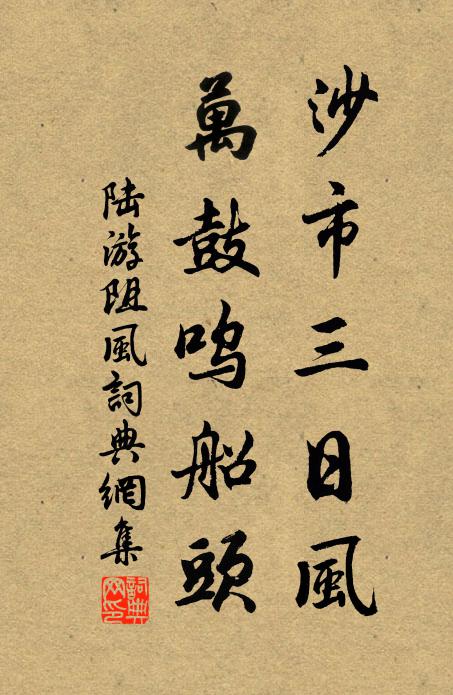 沙市三日風
萬鼓鳴船頭
陆游阻風詞典網集
詞典网印